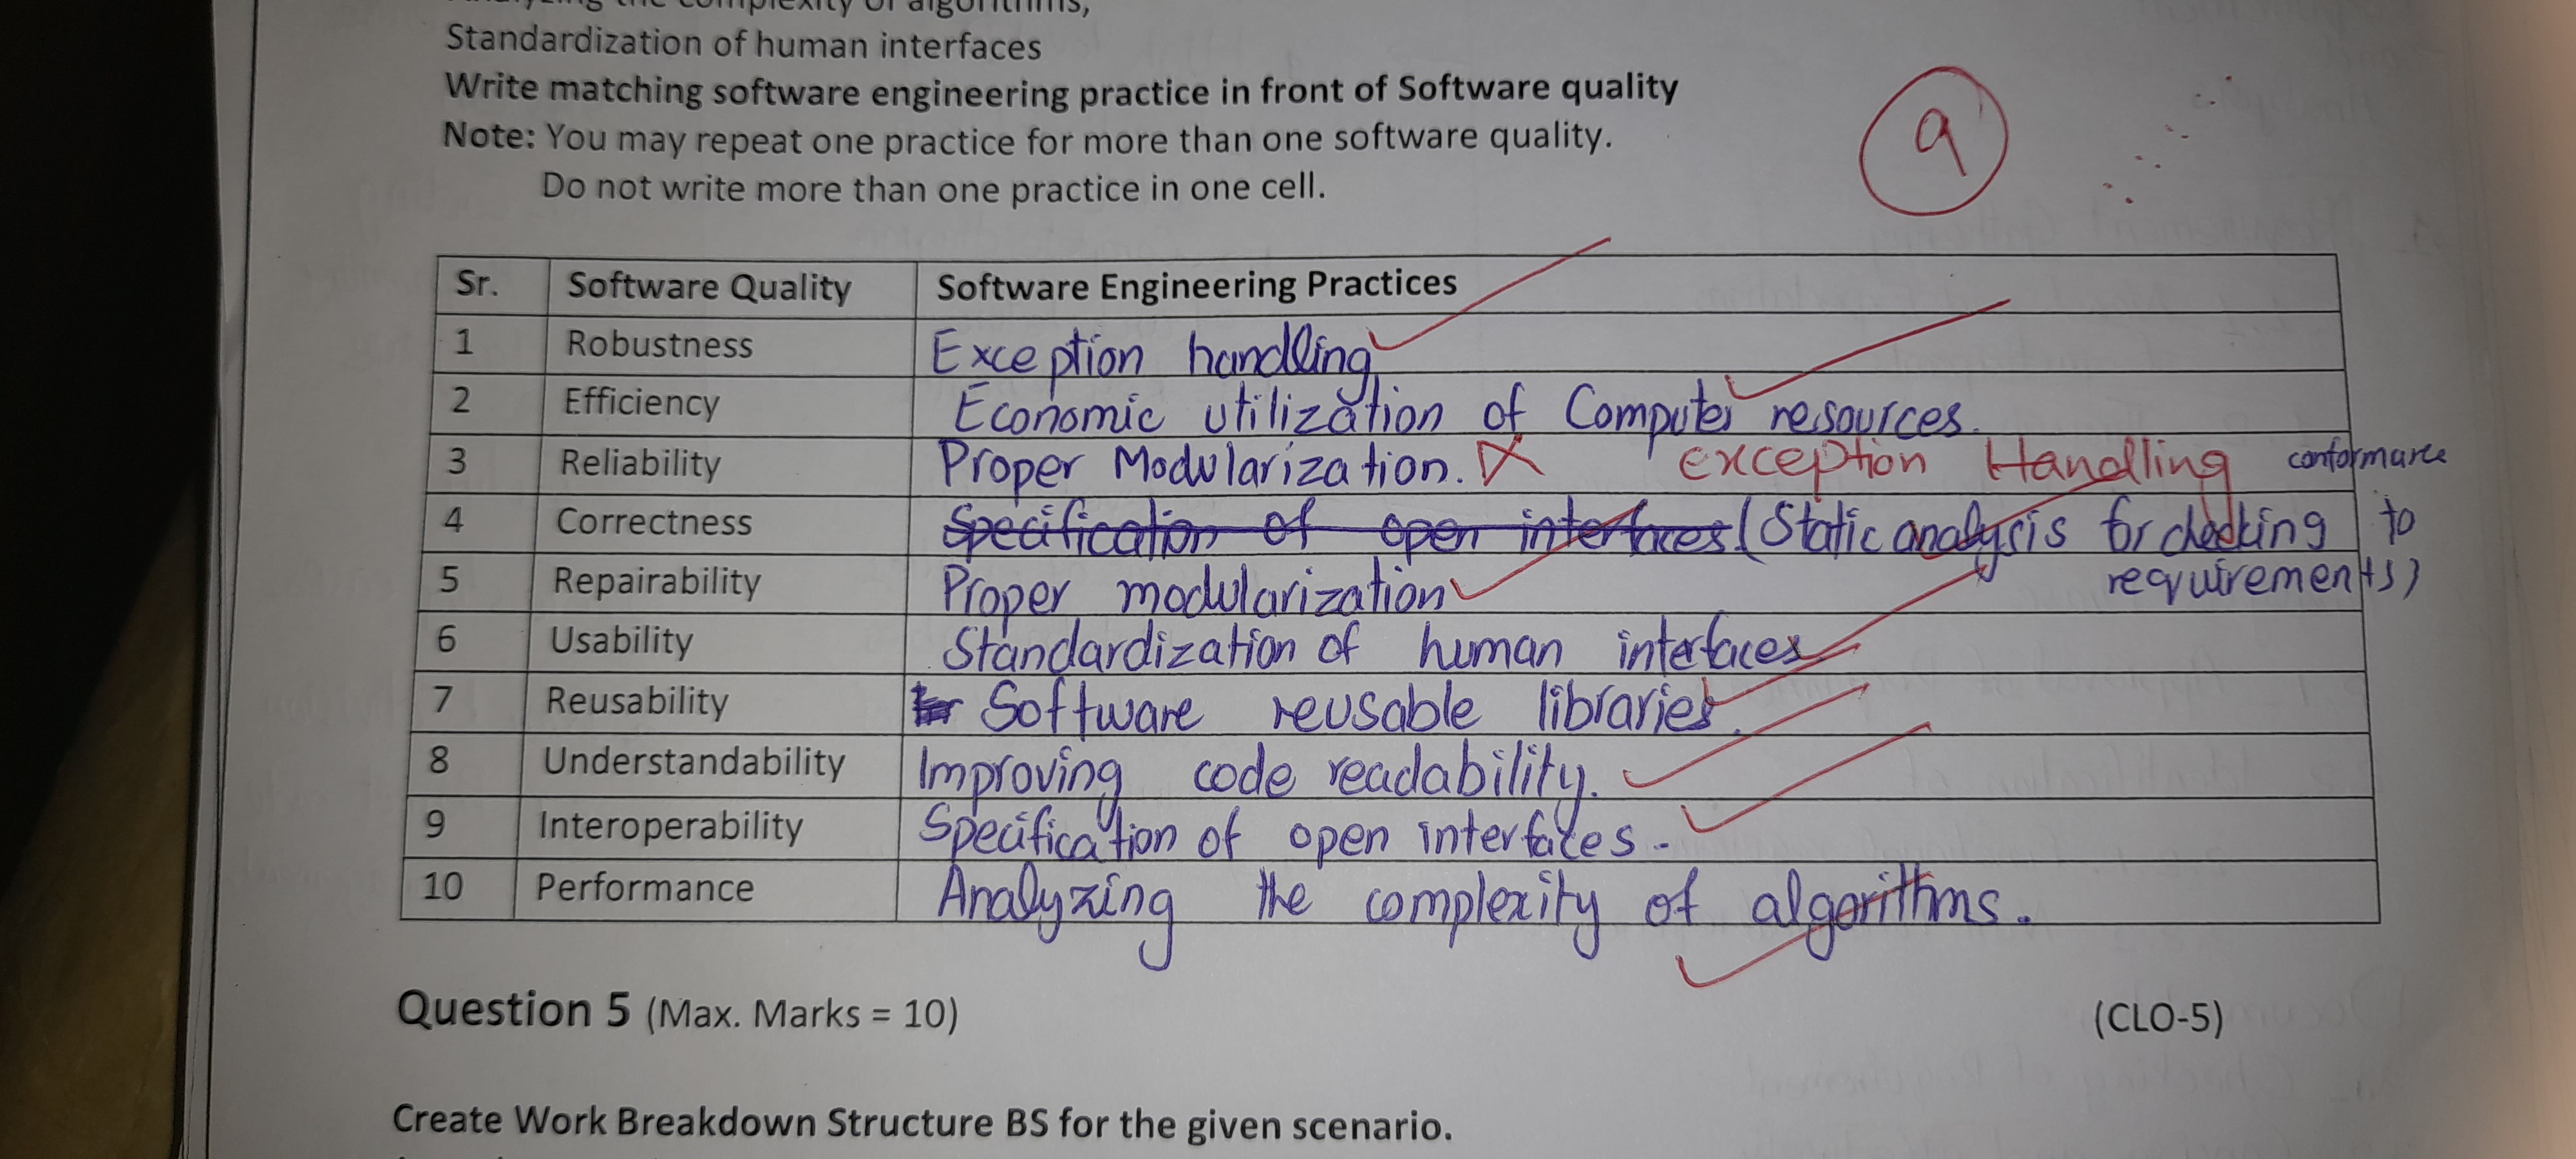 Standardization of human interfaces
Write matching software engineering practice in front of Software quality
Note: You may repeat one practice for more than one software quality.
Do not write more than one practice in one cell.
9
Sr. Software Quality Software Engineering Practices
1 Robustness Exception handling
2 Efficiency Economic utilization of Computer resources.
3 Reliability Proper Modularization. X exception Handling
4 Correctness Specification of open interfaces (Static analysis for checking conformance to requirements)
5 Repairability Proper modularization
6 Usability Standardization of human interfaces
7 Reusability Software reusable libraries.
8 Understandability Improving code readability.
9 Interoperability Specification of open interfaces.
10 Performance Analyzing the complexity of algorithms.
Question 5 (Max. Marks = 10) (CLO-5)
Create Work Breakdown Structure BS for the given scenario.